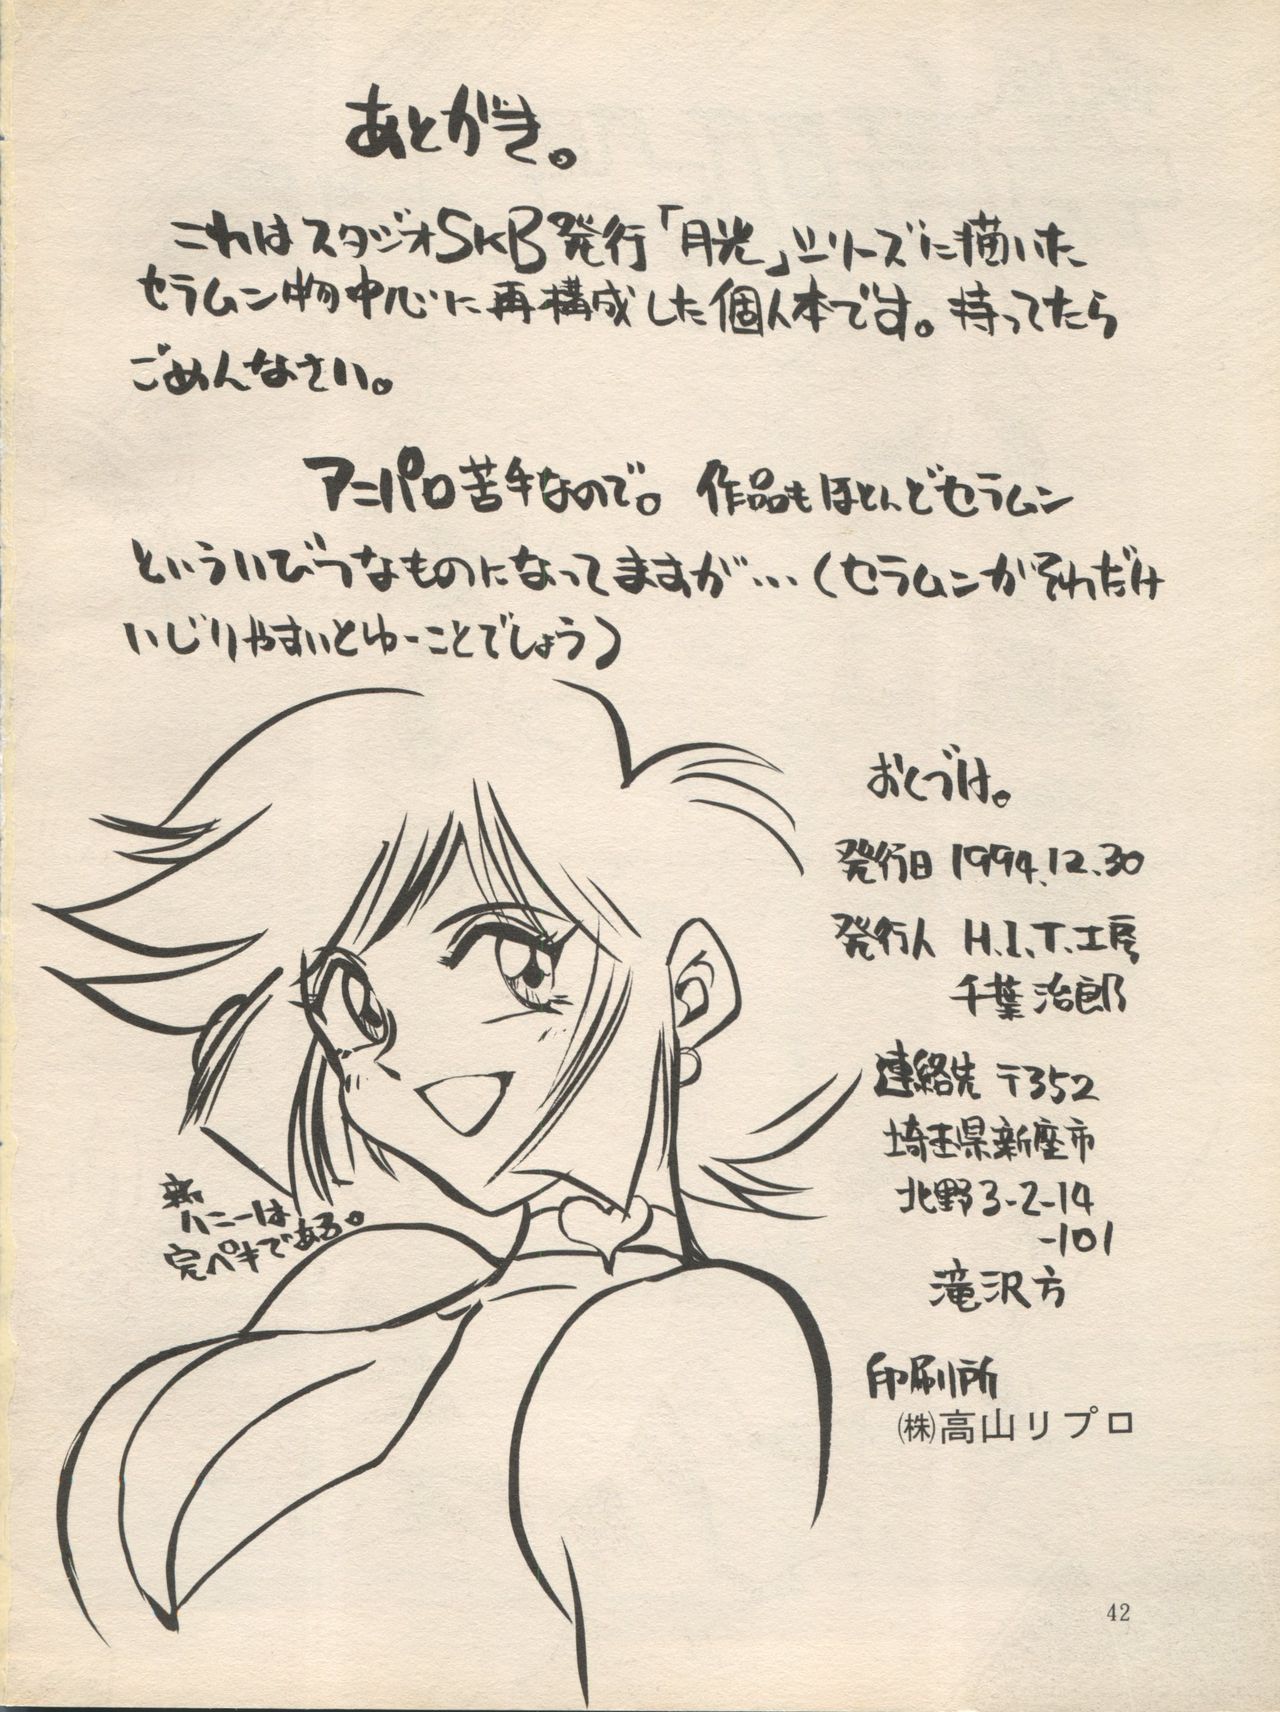 あとがき。
これはスタジオSKB発行「月光」シリーズに描いた
セラムン物中心に再構成した個人本です。持ってたら
ごめんなさい。
アニパロ苦手なので。作品もほとんどセラムン
といういびつなものになってますが…（セラムンがそれだけ
いじりやすいとゆーことでしょう）
おくづけ。
発行日 1994.12.30
発行人 H.I.T.工房
千葉治郎
連絡先 〒352
埼玉県新座市
北野3-2-14
-101
滝沢方
新
ハニーは
完ペキである。
印刷所
㈱高山リプロ
42